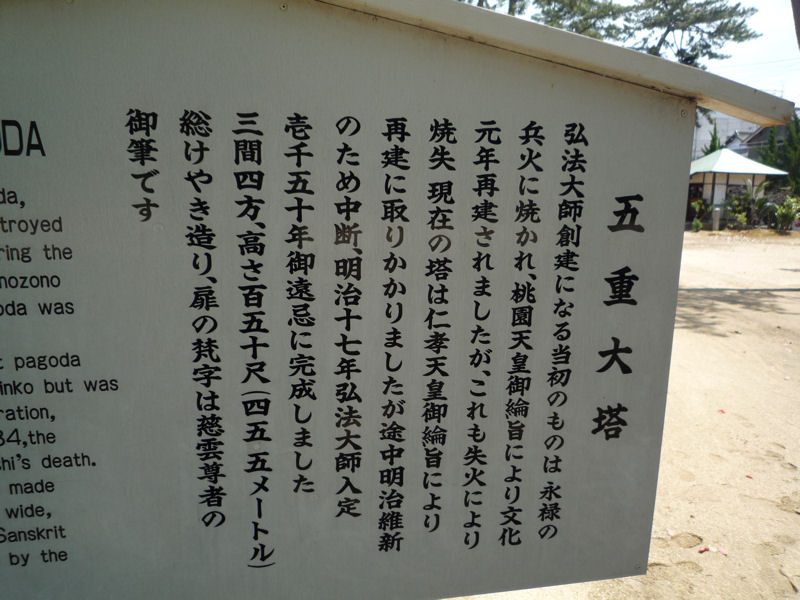 五重大塔
弘法大師創建になる当初のものは 永禄の
兵火に焼かれ、桃園天皇御綸旨により文化
元年再建されましたが、これも失火により
焼失 現在の塔は仁孝天皇御綸旨により
再建に取りかかりましたが途中明治維新
のため中断、明治十七年弘法大師入定
壱千五十年御遠忌に完成しました
三間四方、高さ百五十尺(四五.五メートル)
総けやき造り、扉の梵字は慈雲尊者の
御筆です
ODA
da,
troyed
ring the
nozono
oda was
t pagoda
inko but was
ration,
84,the
hi's death.
made
wide,
Sanskrit
by the